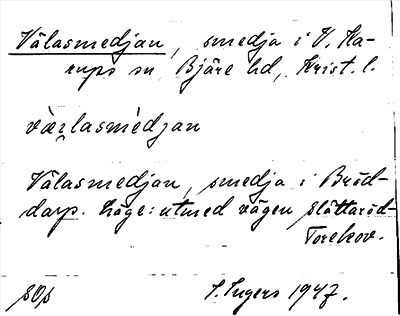 Välasmedjan, smedja i V. Ka-
rups sn, Bjäre hd, Krist. l.
væ̀rlasmèdjan
Välasmedjan, smedja i Bröd-
darp. Läge: utmed vägen Slättaröd-
Torekov.
SOs
I. Ingers 1947.